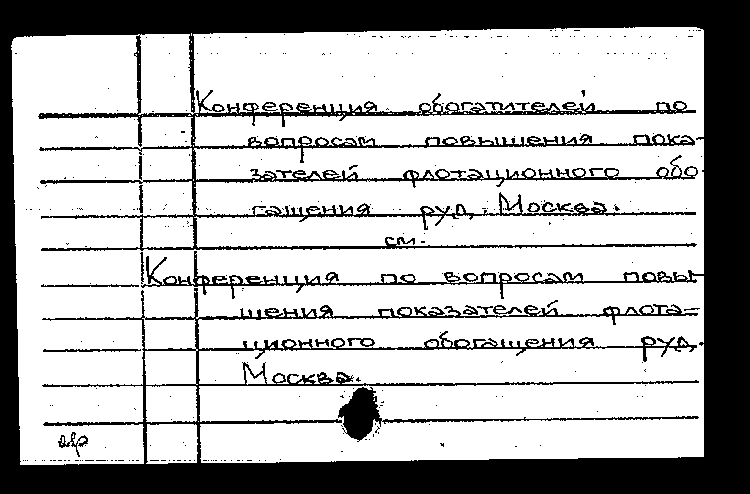 Конференция обогатителей по
вопросам повышения пока-
зателей флотационного обо-
гащения руд. Москва.
см.
Конференция по вопросам повы-
шения показателей флота-
ционного обогащения руд.
Москва.